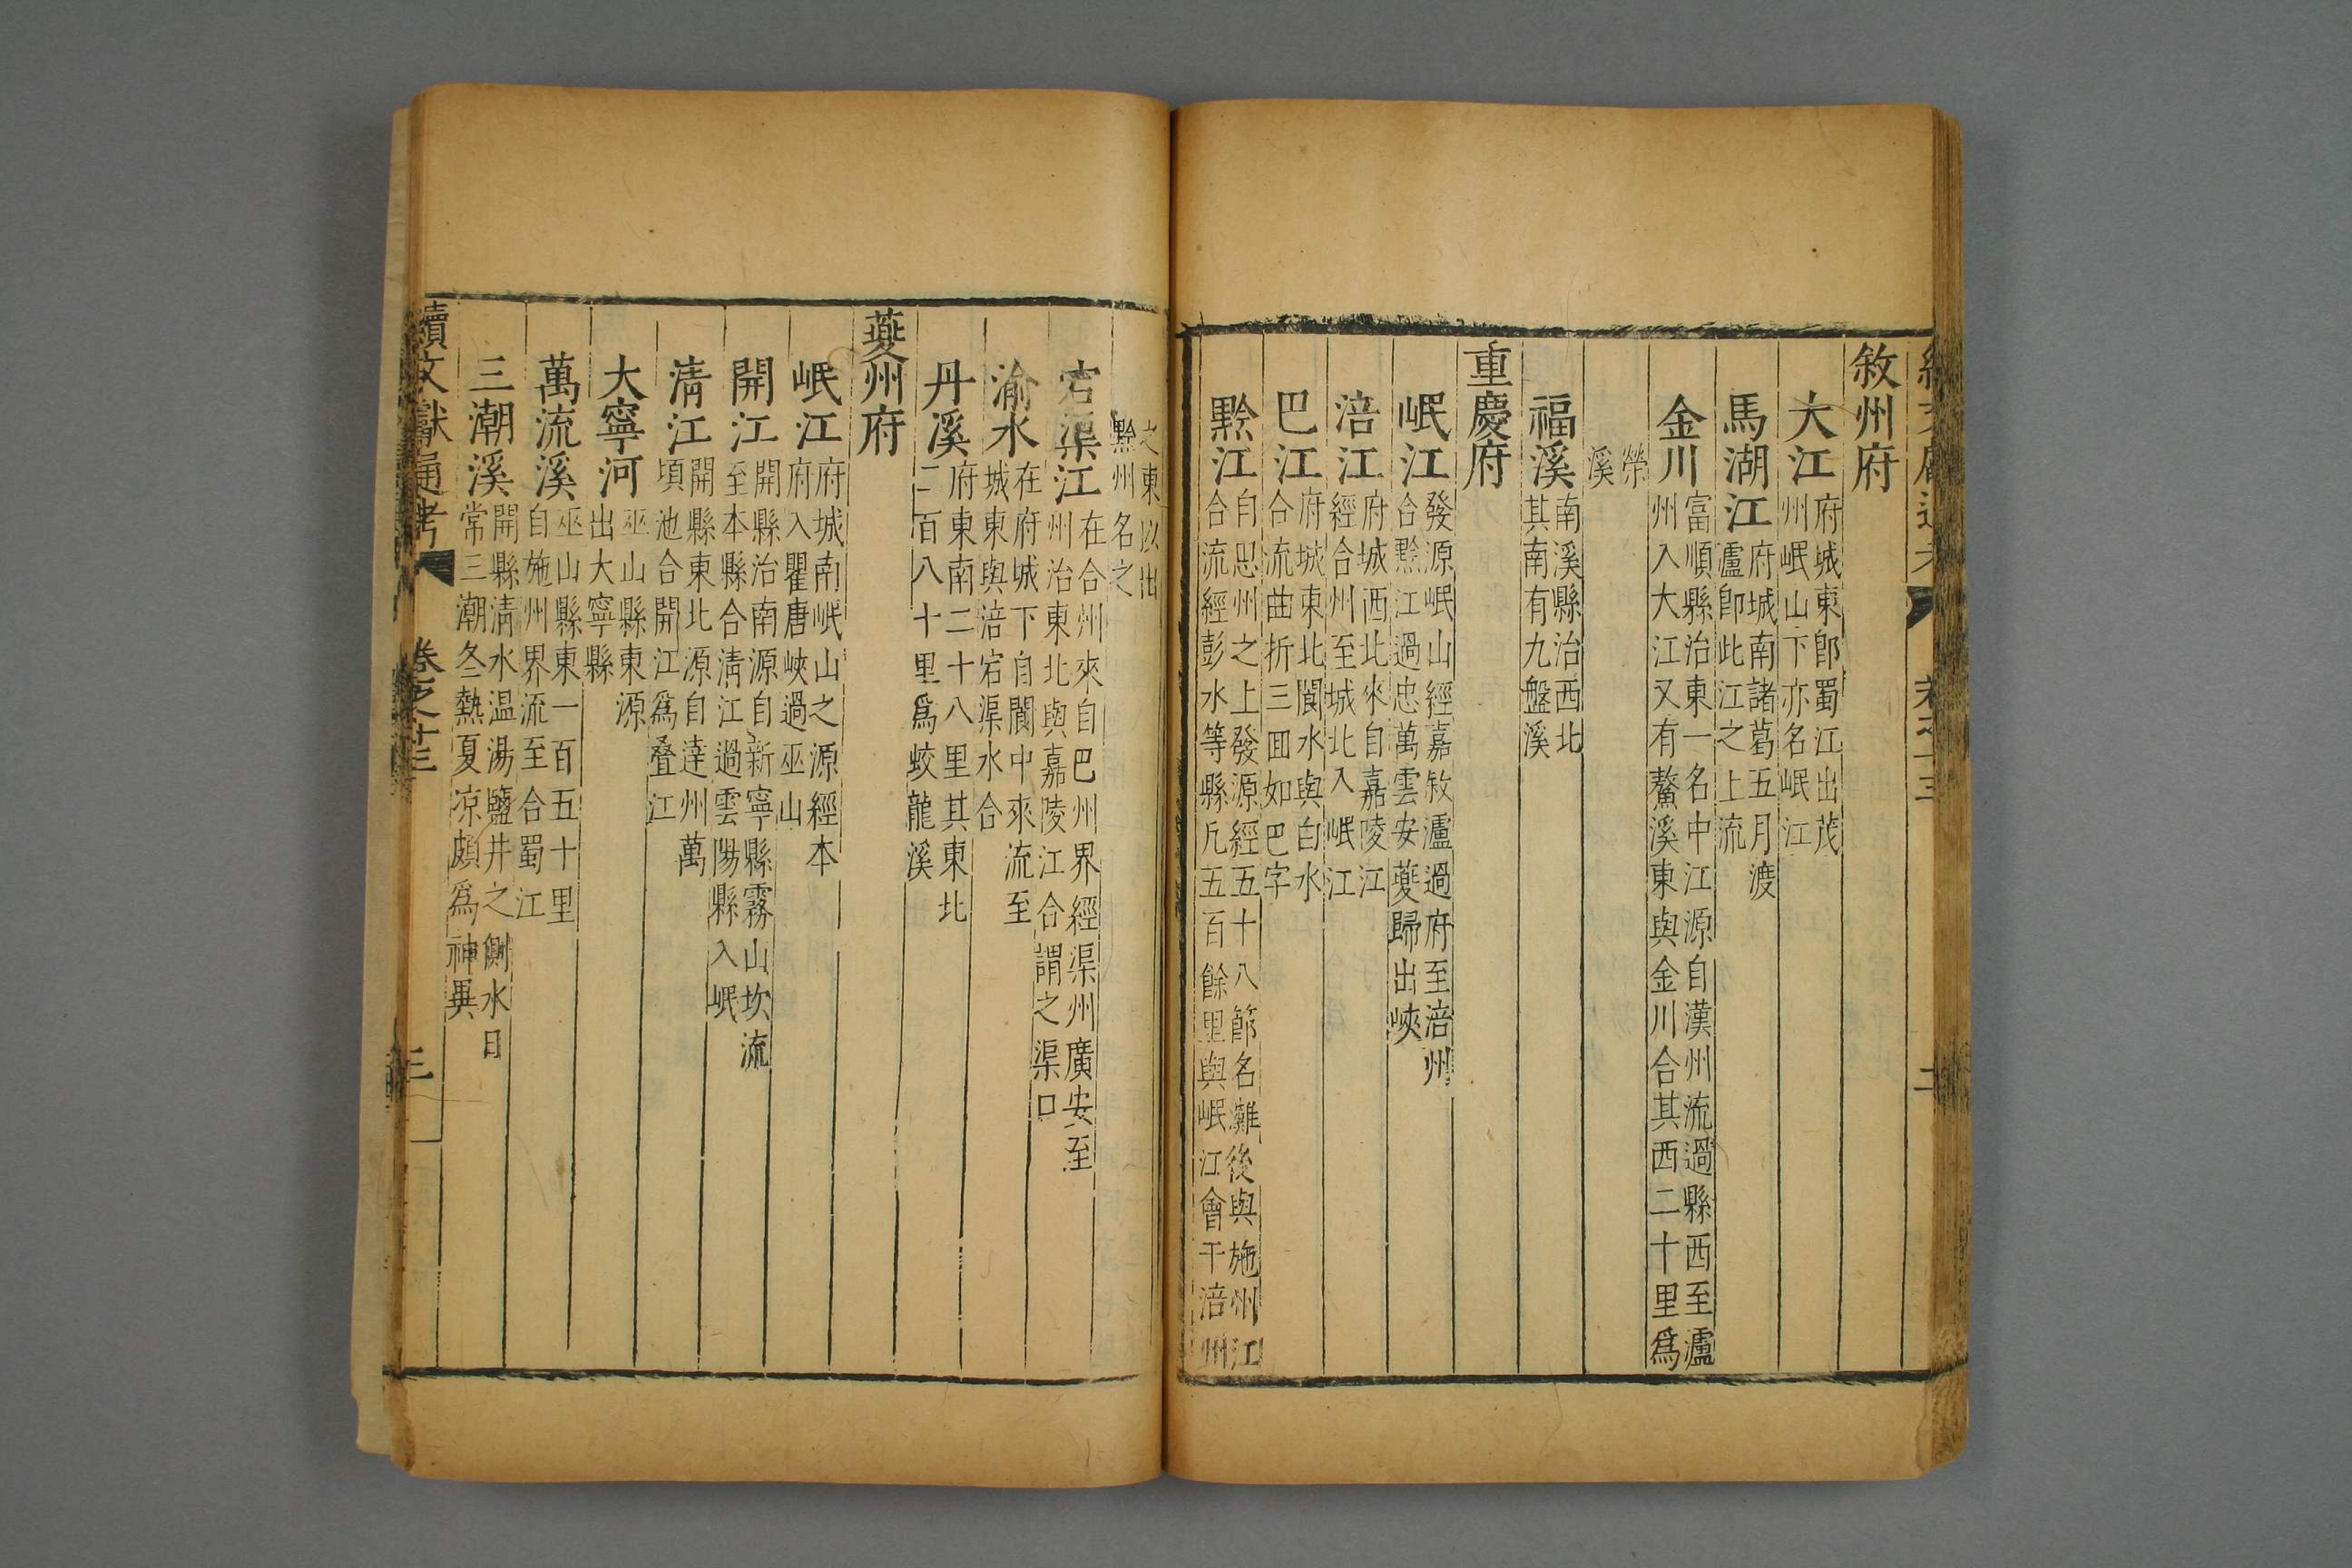 敘州府
大江府城東卽蜀江出茂
州岷山下亦名岷江
馬湖江府城南諸葛五月渡
瀘卽此江之上流
金川富順縣治東一名中江源自漢州流過縣西至瀘
州入大江又有鰲溪東與金川合其西二十里爲
榮
溪
福溪南溪縣治西北
其南有九盤溪
重慶府
岷江發源岷山經嘉敘瀘過府至涪州
合黔江過忠萬雲安夔歸出峽
涪江府城西北來自嘉陵江
經合州至城北入岷江
巴江府城東北閬水與白水
合流曲折三回如巴字
黔江自思州之上發源經五十八節名灘後與施州江
合流經彭水等縣凡五百餘里與岷江會于涪州
之東以出
黔州名之
宕渠江在合州來自巴州界經渠州廣安至
州治東北與嘉陵江合謂之渠口
渝水在府城下自閬中來流至
城東與涪宕渠水合
丹溪府東南二十八里其東北
二百八十里爲蛟龍溪
夔州府
岷江府城南岷山之源經本
府入瞿唐峽過巫山
開江開縣治南源自新寧縣霧山坎流
至本縣合清江過雲陽縣入岷
清江開縣東北源自達州萬
頃池合開江爲叠江
大寧河巫山縣東源
出大寧縣
萬流溪巫山縣東一百五十里
自施州界流至合蜀江
三潮溪開縣清水温湯鹽井之側水日
常三潮冬熱夏凉頗爲神異
續文獻通考 卷之十三 三